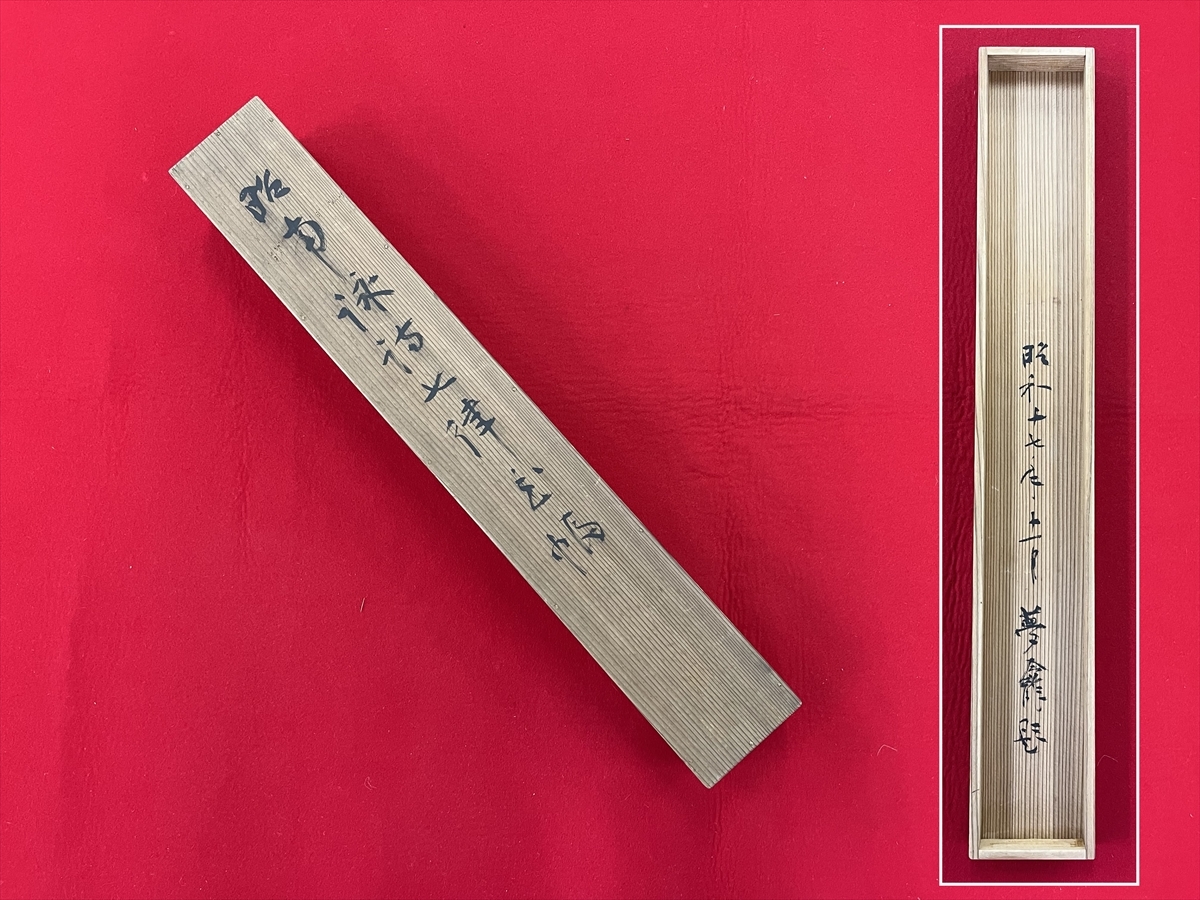 昭南詠詩七律書幅
昭和十七年十一月 夢龕題